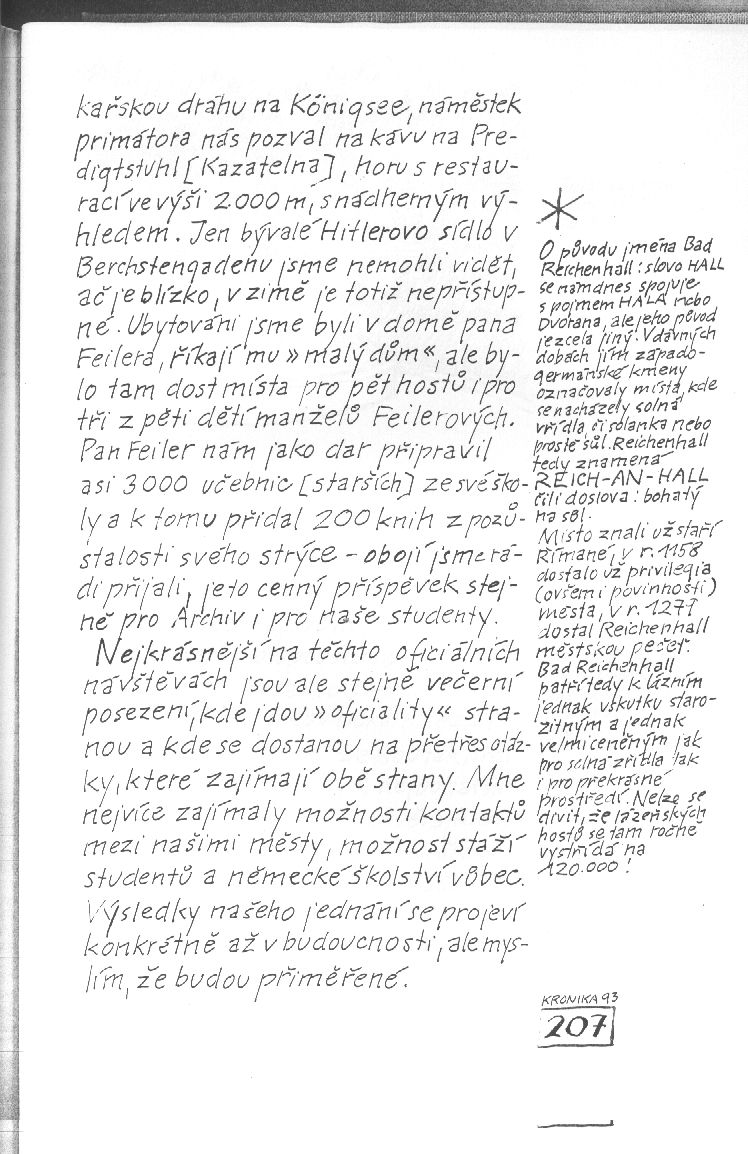 kařskou dráhu na Königsee, náměstek
primátora nás pozval na kávu na Pre-
digtstuhl [Kazatelna], horu s restau-
rací ve výši 2.000 m, s nádherným vý-
hledem. Jen bývalé Hitlerovo sídlo v
Berchstengadenu jsme nemohli vidět,
ač je blízko, v zimě je totiž nepřístup-
né. Ubytováni jsme byli v domě pana
Feilera, říkají mu »malý dům«, ale by-
lo tam dost místa pro pět hostů i pro
tři z pěti dětí manželů Feilerových.
Pan Feiler nám jako dar připravil
asi 3000 učebnic [starších] ze své ško-
ly a k tomu přidal 200 knih z pozů-
stalosti svého strýce – obojí jsme rá-
di přijali, je to cenný příspěvek stej-
ně pro Archiv i pro naše studenty.
Nejkrásnější na těchto oficiálních
návštěvách jsou ale stejně večerní
posezení, kde jdou »oficiality« stra-
nou a kde se dostanou na přetřes otáz-
ky, které zajímají obě strany. Mne
nejvíce zajímaly možnosti kontaktů
mezi našimi městy, možnost stáží
studentů a německé školství vůbec.
Výsledky našeho jednání se projeví
konkrétně až v budoucnosti, ale mys-
lím, že budou přiměřené.
*
O původu jména Bad
Reichenhall: slovo HALL
se nám dnes spojuje
s pojmem HALA nebo
Dvorana, ale jeho původ
je zcela jiný. V dávných
dobách jím západo-
germánské kmeny
označovaly místa, kde
se nacházely solná
vřídla, či solanka nebo
prostě sůl. Reichenhall
tedy znamená
REICH-AN-HALL
čili doslova: bohatý
na sůl.
Místo znali už staří
Římané, v r. 1158
dostalo už privilegia
(ovšem i povinnosti)
města, v r. 1277
dostal Reichenhall
městskou pečeť.
Bad Reichenhall
patří tedy k lázním
jednak vskutku staro-
žitným a jednak
velmi ceněným jak
pro solná zřídla tak
i pro překrásné
prostředí. Nelze se
divit, že lázeňských
hostů se tam ročně
vystřídá na
120.000!
KRONIKA 93
207